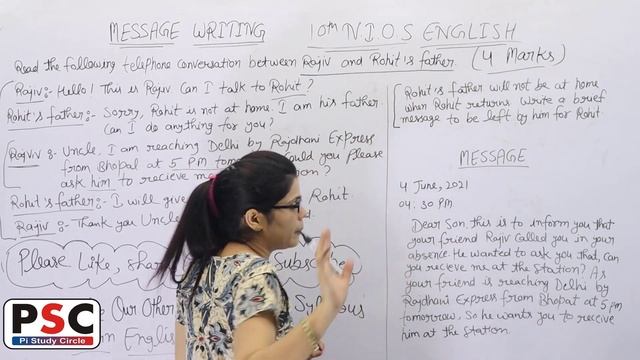 MESSAGE WRITING 10th N.I.O.S ENGLISH
Read the following telephone conversation between Rajiv and Rohit's father. (4 Marks)
Rajiv:- Hello! This is Rajiv Can I talk to Rohit?
Rohit's father:- Sorry, Rohit is not at home. I am his father
Can I do anything for you?
Rajviv:- Uncle, I am reaching Delhi by Rajdhani Express
from Bhopal at 5 PM you Please
ask him to recieve
Rohit's father:- I will give Rohit
Rajiv:- Thank you Uncle
Please Like, Share Subscribe
Our Other
English
Rohit's father will not be at home
when Rohit returns Write a brief
message to be left by him for Rohit.
MESSAGE
4 June, 2021
04:30 PM
Dear Son, this is to inform you that
your friend Rajiv Called you in your
absence. He wanted to ask you that, can
you recieve me at the Station? As
your friend is reaching Delhi by
Rajdhani Express from Bhopal at 5 pm
tomorrow, So he wants you to receive
him at the Station.
PSC
Pi Study Circle